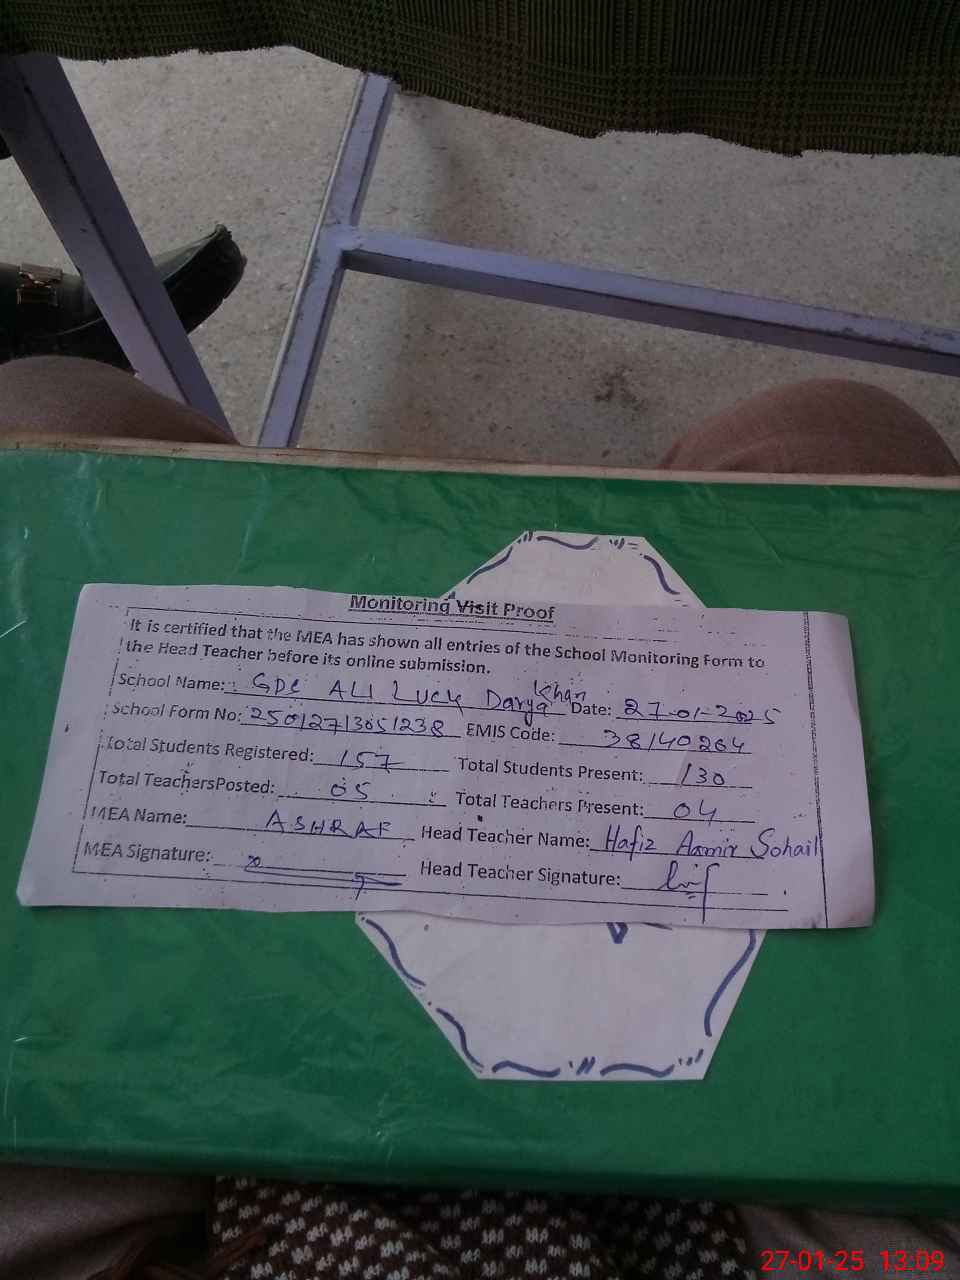 Monitoring Visit Proof
It is certified that the MEA has shown all entries of the School Monitoring Form to
the Head Teacher before its online submission.
School Name: GPS ALI Luck Darya Khan Date: 27-01-2025
School Form No: 25012713051238 EMIS Code: 38140264
Total Students Registered: 157 Total Students Present: 130
Total TeachersPosted: 05 Total Teachers Present: 04
MEA Name: ASHRAF Head Teacher Name: Hafiz Aamir Sohail
MEA Signature: Head Teacher Signature:
27-01-25 13:09